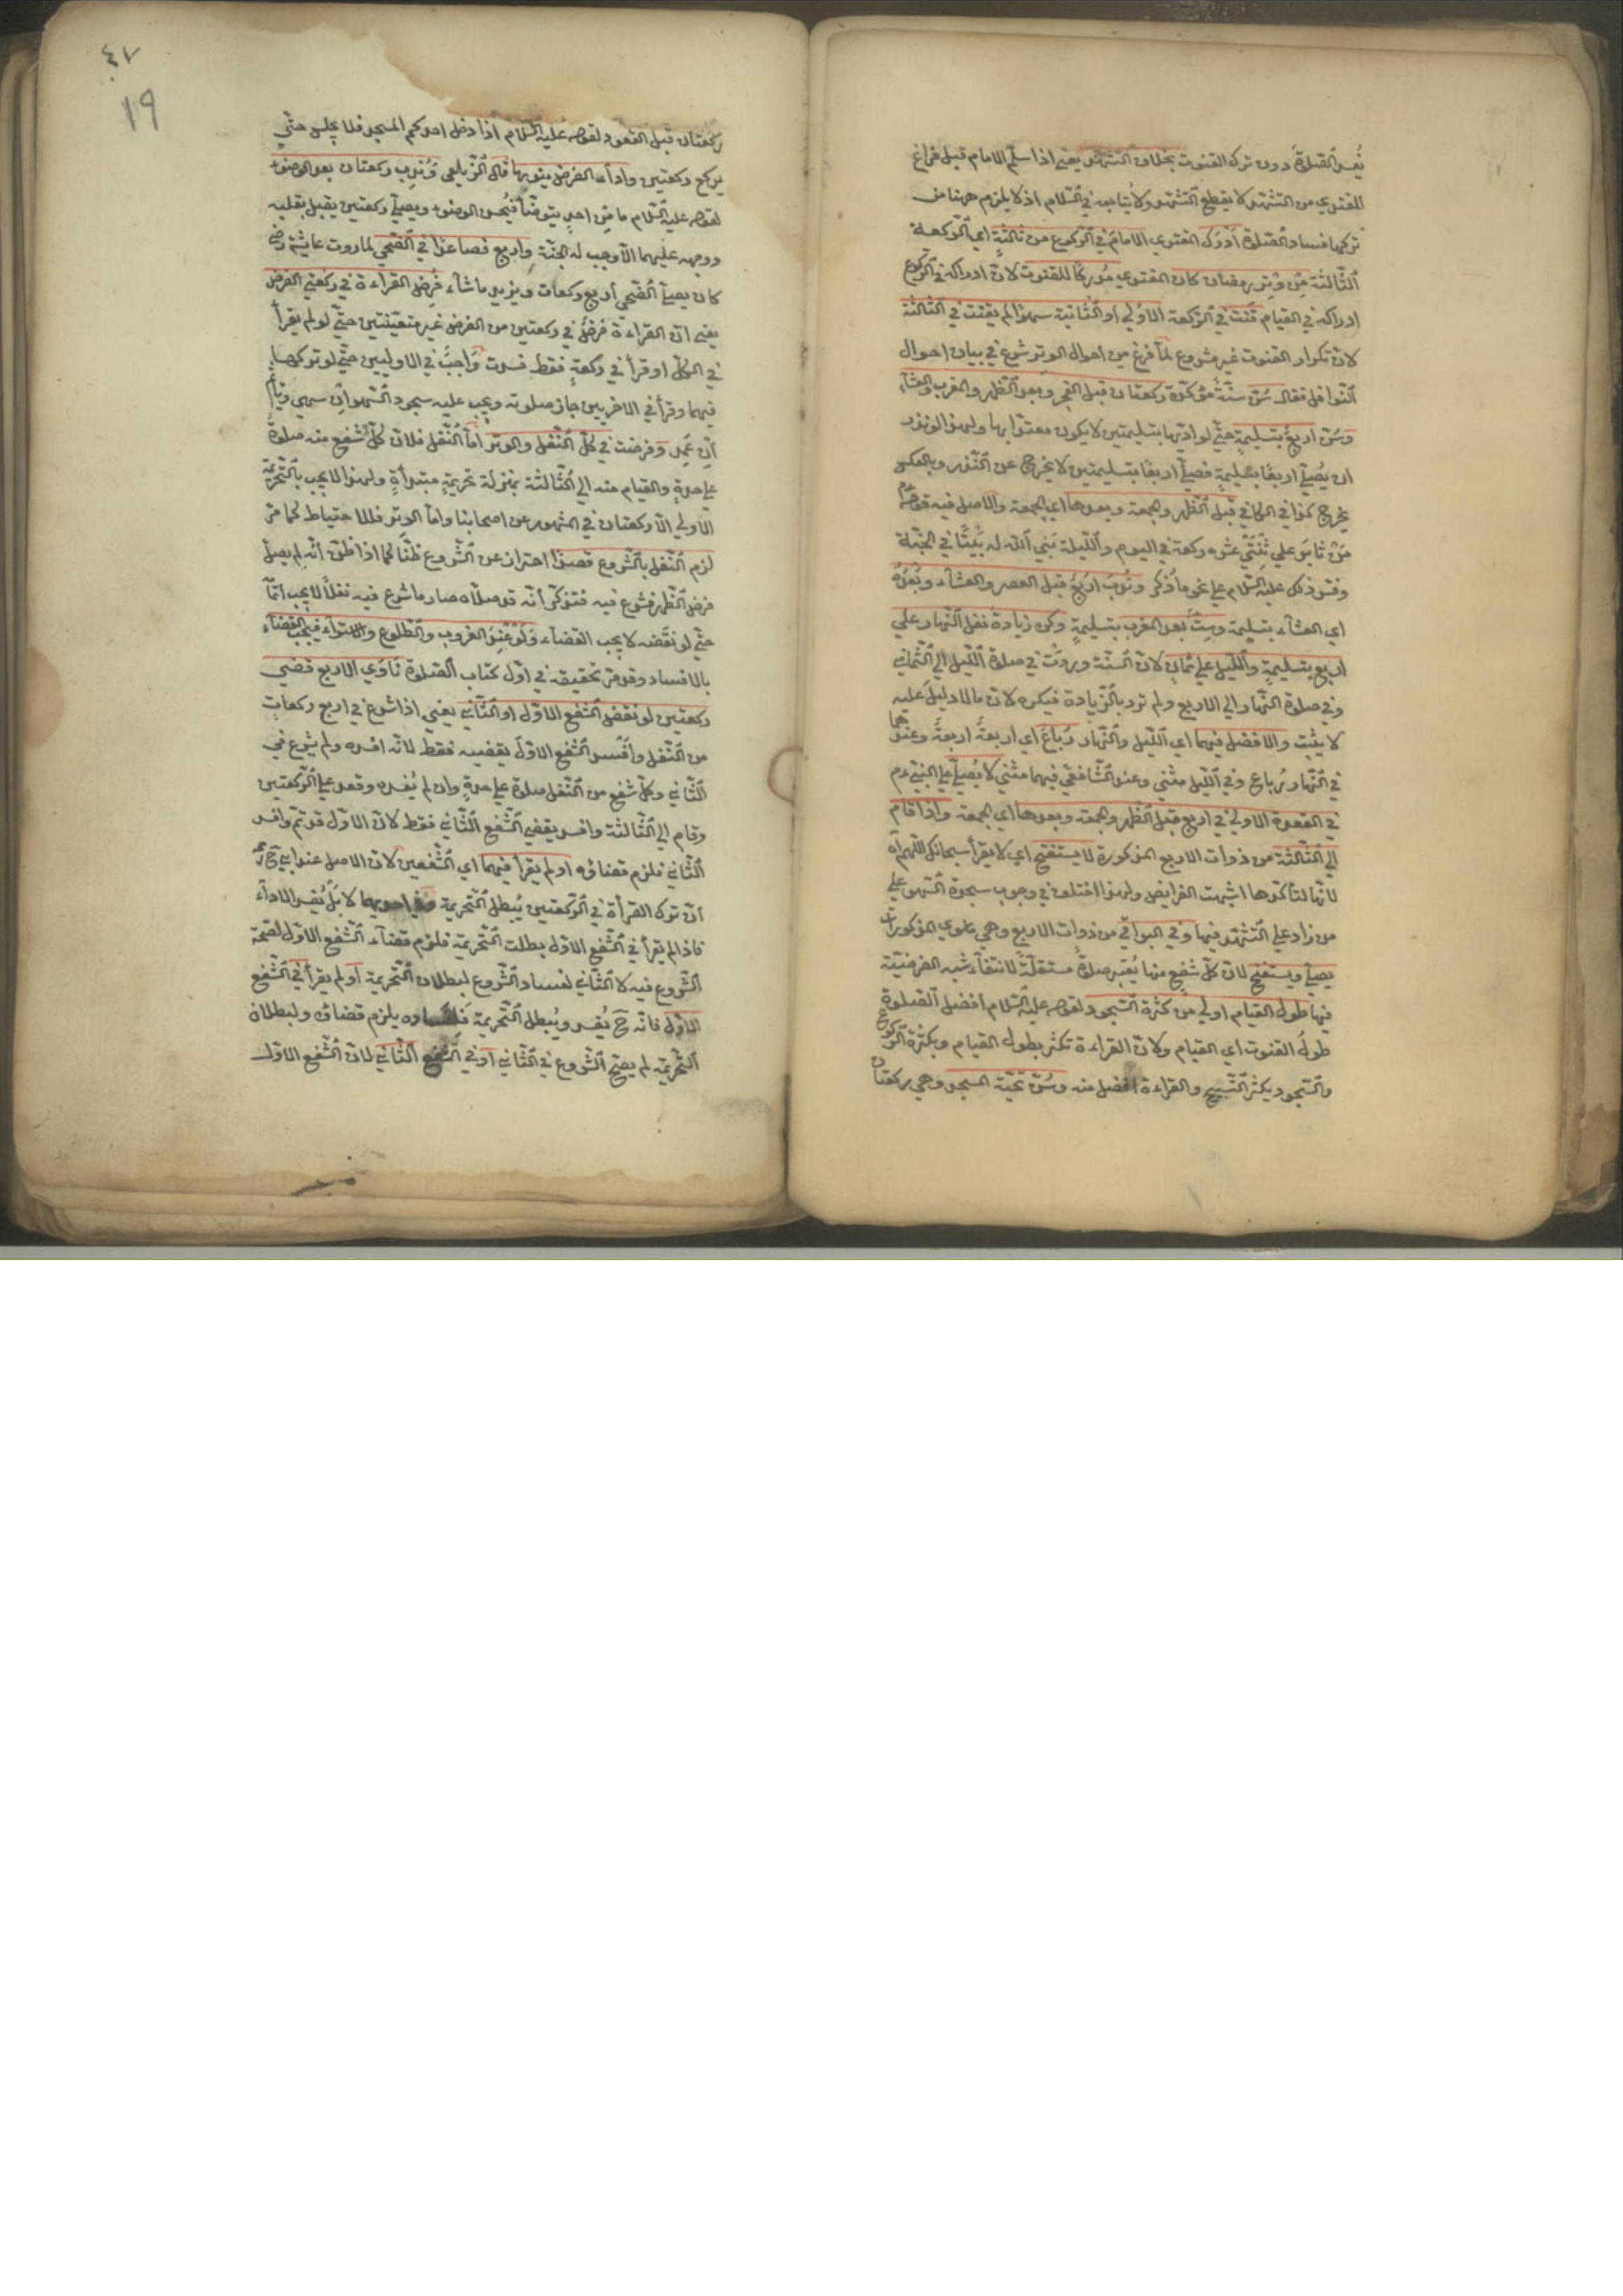 يُفسد الصّلوة دون ترك القنوت بخلاف التشهّد يعني اذا سلّم الامام قبل فراغ
المقتدي من التشهّد لا يقطع التّشهّد ولا يتابعه في السّلام اذ لا يلزم هنا من
تركها فساد الصّلوة أدْرَكَ المقتدي الامامَ في الرّكوع من ثالثةٍ اي الرّكعة
الثّالثة مِن وِترِ رمضان كان المقتدي مُدركًا للقنوت لانّ ادراكه في الرّكوع
ادراكه في القيام قنت في الرّكعة الاولى او الثّانية سهوًا لم يقنت في الثّالثة
لانّ تكرار القنوت غير مشروع لمّا فرغ من احوال الوتر شرع في بيان احوال
النّوافل فقال سُنّ سنّةً مؤكّدة ركعتان قبل الفجر وبعد الظّهر والمغرب والعشآء
وسُنّ اربعٌ بتسليمةٍ حتّى لو ادّيها بتسليمتين لا يكون معتدّا بها ولهذا لو نذر
ان يُصلّي اربعًا بتسليمةٍ فصلّى اربعًا بتسليمتين لا يخرج عن النّذر وبالعكس
يخرج كذا في الكافي قبل الظّهر والجمعة وبعدها اي الجمعة والاصل فيه قوله عم
مَنْ ثابَرَ على ثِنْتَيْ عشرة ركعة في اليوم واللّيلة بَنى الله له بَيْتًا في الجنّة
وفسّر ذلك عليه السّلام على نحو ما ذُكر ونُدِبَ اربعٌ قبل العصر والعشآء وبَعْدَهُ
اي العشآء بتسليمة وستٌّ بعد المغرب بتسليمةٍ وكره زيادة نفل النّهار على
اربع بتسليمةٍ واللّيل على ثمانٍ لانّ السنّة وردت في صلوة اللّيل الى الثّماني
وفي صلوة النّهار الى الاربع ولم ترد بالزّيادة فيكره لانّ ما لا دليل عليه
لا يثبت والافضل فيهما اي اللّيل والنّهار رُباعَ اي اربعةً اربعةً وعندهما
في النّهار رُباع وفي اللّيل مثنى وعند الشّافعي فيهما مثنى لا يُصلّي على النّبيّ عم
في القعدة الاولى في اربع قبل الظّهر والجمعة وبعدها اي الجمعة واذا قام
الى الثّالثة من ذوات الاربع المذكورة لا يستفتح اي لا يقرأ سبحانك اللهم اه
لانّها لتأكّدها اشبهت الفرايض ولهذا اختلف في وجوب سجدة السّهو على
من زاد على التّشهّد فيها وفي البواقي من ذوات الاربع وهي ما سوى المذكورات
يصلّي ويستفتح لانّ كلّ شفعٍ منها يُعتبر صلوةً مستقلّةً لانتفآء شبه الفرضيّة
فيها طول القيام اولى من كثرة السّجود لقوله عليه السّلام افضل الصّلوة
طولُ القنوت اي القيام ولانّ القراءة تكثر بطول القيام وبكثرة الرّكوع
والسّجود يكثر التّسبيح والقراءة افضل منه وسُنّ تحيّة المسجد وهي ركعتان
٤٧
١٩
ركعتان قبل القعود لقوله عليه السّلام اذا دخل احدكم المسجد فلا يجلس حتّى
يركع ركعتين واداء الفرض ينوب بها قاله الزّيلعي ونُدِب ركعتان بعد الوضوء
لقوله عليه السّلام ما مِن احدٍ يتوضّأ فيُحسن الوضوء ويصلّي ركعتين يقبل بقلبه
ووجهه عليهما الّا وجب له الجنّة واربع فصاعدًا في الضّحى لما روت عايشة رضي
كان يصلّي الضّحى أربع ركعات ويزيد ما شآء فُرِض القراءة في ركعتي الفرض
يعني انّ القراءة فرضٌ في ركعتين من الفرض غير متعيّنتين حتّى لو لم يقرأ
في الكلّ او قرأ في ركعةٍ فقط فسدت وَاجبٌ في الاوليين حتّى لو تركها
فيهما وقرأ في الاخريين جاز صلوته ويجب عليه سجود السّهو ان سهى ويأثم
ان عمد وفرضت في كلّ النّفل والوتر امّا النّفل فلانّ كلّ شفع منه صلوةٌ
على حدةٍ والقيام منه الى الثّالثة بمنزلة تحريمةٍ مبتدأةٍ ولهذا لا يجب بالتّحريمة
الاولى الّا ركعتان في المشهور عن اصحابنا وامّا الوتر فللاحتياط كما مرّ
لزم النّفل بالشّروع قصدًا احتراز عن الشّروع ظنًّا كما اذا ظنّ انّه لم يصلّ
فرض الظّهر فشرع فيه فتذكّر أنّه قد صلّاه صار ما شرع فيه نفلًا لا يجب اتمامه
حتّى لو نقضه لا يجب القضآء ولَوْ عِنْدَ الغروب والطّلوع والاستوآء فيجب القضآء
بالافساد وقد مرّ تحقيقه في اوّل كتاب الصّلوة ناوي الاربع قضى
ركعتين لو نقض الشّفع الاوّل او الثّاني يعني اذا شرع في اربع ركعاتٍ
من النّفل وأفسد الشّفع الاوّلَ يقضيه فقط لانّه افسده ولم يشرع في
الثّاني وكلّ شفع من النّفل صلوة على حدةٍ وان لم يُفسده وقعد على الرّكعتين
وقام الى الثّالثة وافسد يقضي الشّفع الثّاني فقط لانّ الاوّل قد تمّ وافسد
الثّاني فلزم قضاؤه او لم يقرأ فيهما اي الشّفعين لانّ الاصل عند ابي ح رح
انّ ترك القرأة في الرّكعتين يُبطل التّحريمة وفي احديهما لا بَلْ يُفسد الاداء
فاذا لم يقرأ في الشّفع الاوّل بطلت التّحريمة فلزم قضآء الشّفع الاوّل لصحّة
الشّروع فيه لا الثّاني لفساد الشّروع لبطلان التّحريمة او لم يقرأ في الشّفع
الاوّل فانّه ح يُفسد ويُبطل التّحريمة يلزم قضاؤه ولبطلان
التّحريمة لم يصحّ الشّروع في الثّاني او في الشّفع الثّاني لانّ الشّفع الاوّل